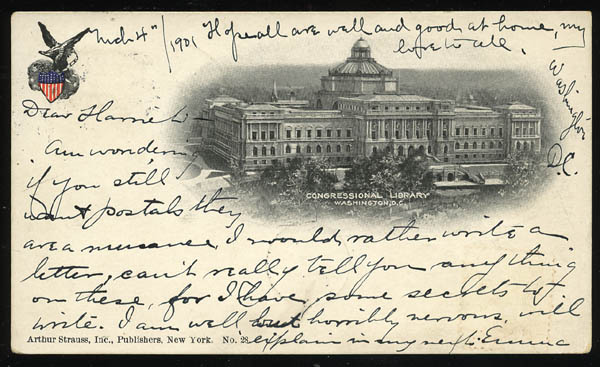 Mch 4" / 1901
Hope all are well and good at home, my
love to all.
Washington
D.C.
Dear Harriet :-
Am wondering
if you still
want postals they
are a nuisance, I would rather write a
letter, can't really tell you anything
on these, for I have some secrets to
write. I am well but horribly nervous, will
explain in my next. Emma
CONGRESSIONAL LIBRARY
WASHINGTON, D.C.
Arthur Strauss, Inc., Publishers, New York. No. 28